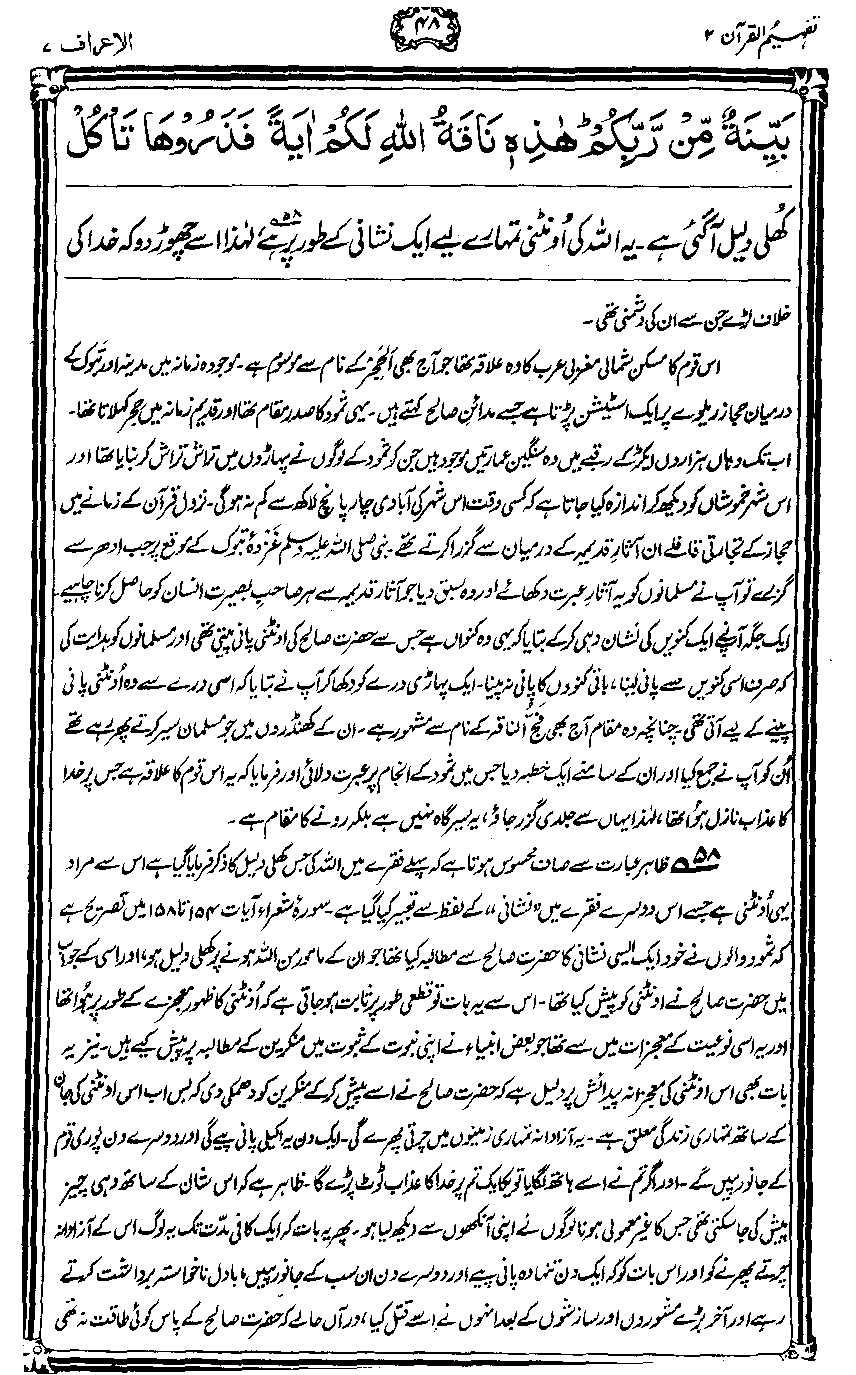 تفہیم القرآن ۲
۴۸
الاعراف ۷
بَيِّنَةٌ مِّنْ رَّبِّكُمْ ؕ هٰذِهٖ نَاقَةُ اللّٰهِ لَكُمْ اٰيَةً فَذَرُوْهَا تَاْكُلْ
کُھلی دلیل آگئی ہے۔ یہ اللہ کی اُونٹنی تمہارے لیے ایک نشانی کے طور پر ہے۵۸، لہٰذا اسے چھوڑ دو کہ خدا کی
خلاف لڑے جن سے ان کی دشمنی تھی۔
اس قوم کا مسکن شمالی مغربی عرب کا وہ علاقہ تھا جو آج بھی اَلْحِجْر کے نام سے موسوم ہے۔ موجودہ زمانہ میں مدینہ اور تَبوک کے
درمیان حجاز ریلوے پر ایک اسٹیشن پڑتا ہے جسے مدائنِ صالح کہتے ہیں۔ یہی ثمود کا صدر مقام تھا اور قدیم زمانہ میں حجر کہلاتا تھا۔
اب تک وہاں ہزاروں ایکڑ کے رقبے میں وہ سنگین عمارتیں موجود ہیں جن کو ثمود کے لوگوں نے پہاڑوں میں تراش تراش کر بنایا تھا اور
اس شہرِ خموشاں کو دیکھ کر اندازہ کیا جاتا ہے کہ کسی وقت اس شہر کی آبادی چار پانچ لاکھ سے کم نہ ہوگی۔ نزولِ قرآن کے زمانے میں
حجاز کے تجارتی قافلے ان آثارِ قدیمہ کے درمیان سے گزرا کرتے تھے۔ نبی صلی اللہ علیہ وسلم غزوۂ تبوک کے موقع پر جب ادھر سے
گزرے تو آپ نے مسلمانوں کو یہ آثارِ عبرت دکھائے اور وہ سبق دیا جو آثارِ قدیمہ سے ہر صاحبِ بصیرت انسان کو حاصل کرنا چاہیے۔
ایک جگہ آپ نے ایک کنویں کی نشان دہی کر کے بتایا کہ یہی وہ کنواں ہے جس سے حضرت صالح کی اونٹنی پانی پیتی تھی اور مسلمانوں کو ہدایت کی
کہ صرف اسی کنویں سے پانی لینا، باقی کنووں کا پانی نہ پینا۔ ایک پہاڑی درے کو دکھا کر آپ نے بتایا کہ اسی درے سے وہ اُونٹنی پانی
پینے کے لیے آتی تھی۔ چنانچہ وہ مقام آج بھی فَجُّ الناقہ کے نام سے مشہور ہے۔ ان کے کھنڈروں میں جو مسلمان سیر کرتے پھر رہے تھے
اُن کو آپ نے جمع کیا اور ان کے سامنے ایک خطبہ دیا جس میں ثمود کے انجام پر عبرت دلائی اور فرمایا کہ یہ اس قوم کا علاقہ ہے جس پر خدا
کا عذاب نازل ہوا تھا، لہٰذا یہاں سے جلدی گزر جاؤ، یہ سیرگاہ نہیں ہے بلکہ رونے کا مقام ہے۔
۵۸ ظاہر عبارت سے صاف محسوس ہوتا ہے کہ پہلے فقرے میں اللہ کی جس کھلی دلیل کا ذکر فرمایا گیا ہے اس سے مراد
یہی اُونٹنی ہے جسے اس دوسرے فقرے میں ”نشانی“ کے لفظ سے تعبیر کیا گیا ہے۔ سورۂ شعراء آیات ۱۵۴ تا ۱۵۸ میں تصریح ہے
کہ ثمود والوں نے خود ایک ایسی نشانی کا حضرت صالح سے مطالبہ کیا تھا جو ان کے مامور من اللہ ہونے پر کھلی دلیل ہو، اور اسی کے جواب
میں حضرت صالح نے اونٹنی کو پیش کیا تھا۔ اس سے یہ بات تو قطعی طور پر ثابت ہو جاتی ہے کہ اُونٹنی کا ظہور معجزے کے طور پر ہُوا تھا
اور یہ اسی نوعیت کے معجزات میں سے تھا جو بعض انبیاء نے اپنی نبوت کے ثبوت میں منکرین کے مطالبہ پر پیش کیے ہیں۔ نیز یہ
بات بھی اس اونٹنی کی معجزانہ پیدائش پر دلیل ہے کہ حضرت صالح نے اسے پیش کر کے منکرین کو دھمکی دی کہ بس اب اس اونٹنی کی جان
کے ساتھ تمہاری زندگی معلق ہے۔ یہ آزادانہ تمہاری زمینوں میں چرتی پھرے گی۔ ایک دن یہ اکیلی پانی پیے گی اور دوسرے دن پوری قوم
کے جانور پییں گے۔ اور اگر تم نے اسے ہاتھ لگایا تو یکایک تم پر خدا کا عذاب ٹوٹ پڑے گا۔ ظاہر ہے کہ اس شان کے ساتھ وہی چیز
پیش کی جا سکتی تھی جس کا غیر معمولی ہونا لوگوں نے اپنی آنکھوں سے دیکھ لیا ہو۔ پھر یہ بات کہ ایک کافی مدّت تک یہ لوگ اس کے آزادانہ
چرتے پھرنے کو اور اس بات کو کہ ایک دن تنہا وہ پانی پیے اور دوسرے دن ان سب کے جانور پییں، بادل ناخواستہ برداشت کرتے
رہے اور آخر بڑے مشوروں اور سازشوں کے بعد انہوں نے اسے قتل کیا، درآں حالے کہ حضرت صالح کے پاس کوئی طاقت نہ تھی